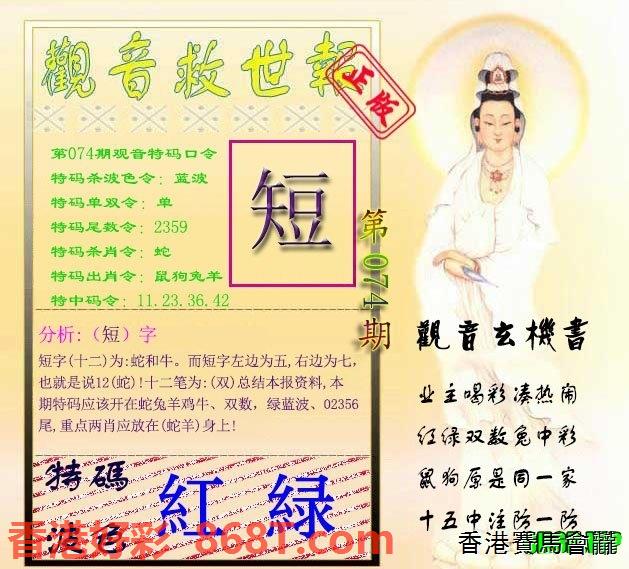 觀音救世報
正版
第074期观音特码口令
特码杀波色令：蓝波
特码单双令：单
特码尾数令：2359
特码杀肖令：蛇
特码出肖令：鼠狗兔羊
特中码令：11.23.36.42
短
第074期
分析:（短）字
短字(十二)为:蛇和牛。而短字左边为五,右边为七,
也就是说12(蛇)!十二笔为:(双)总结本报资料,本
期特码应该开在蛇兔羊鸡牛、双数，绿蓝波、02356
尾,重点两肖应放在(蛇羊)身上!
特碼
波色
紅 绿
觀音玄機書
业主喝彩凑热闹
红绿双数兔中彩
鼠狗原是同一家
十五中注防一防
香港好彩 868T.com
香港賽馬會